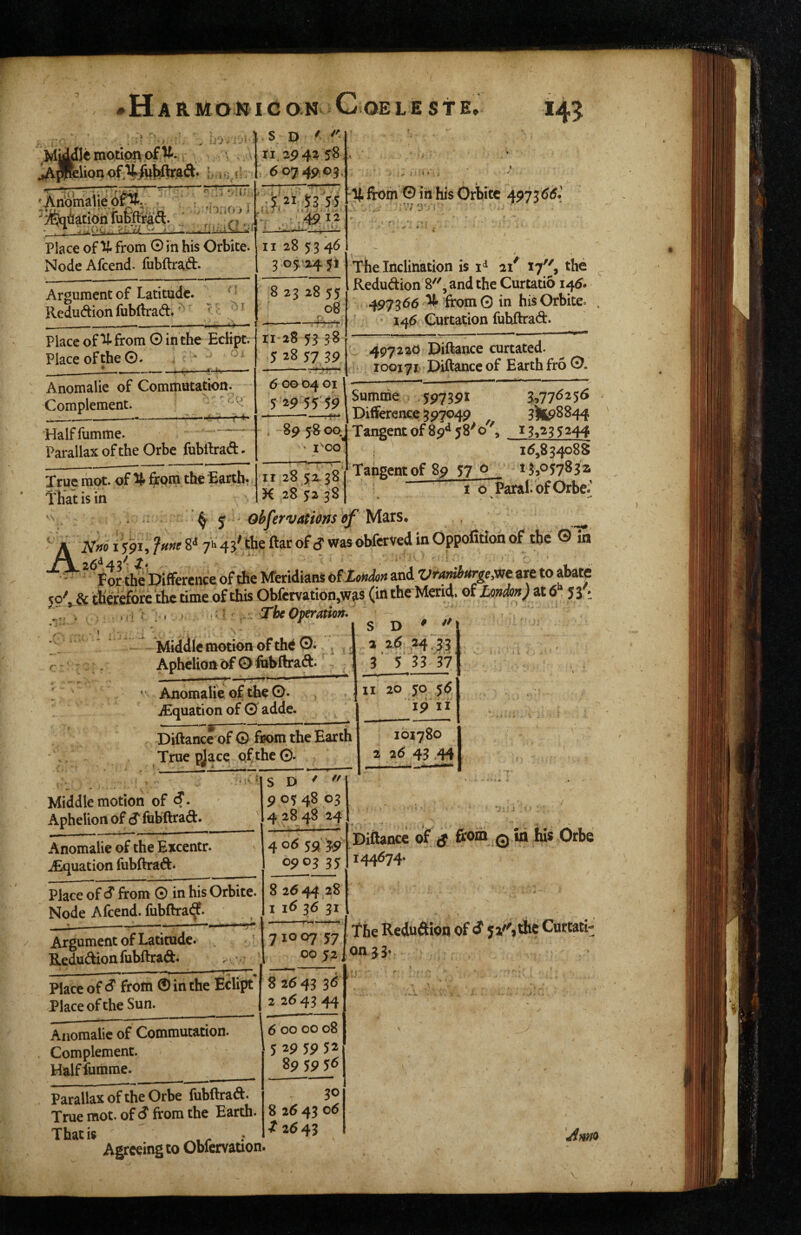 HARMONICON COELESTE. 143
S D ′ ″
Middle motion of ♃. 11 29 42 58
Aphelion of ♃ ſubſtract. 6 07 49 03
Anomalie of ♃. 5 21 53 55
Æquation ſubſtract. 49 12
♃ from ☉ in his Orbite 497366.
Place of ♃ from ☉ in his Orbite. 11 28 53 46
Node Aſcend. ſubſtract. 3 05 24 51
Argument of Latitude. 8 23 28 55
Reduction ſubſtract. 08
The Inclination is 1ᵈ 21′ 17″, the
Reduction 8″, and the Curtatio 146.
497366 ♃ from ☉ in his Orbite.
146 Curtation ſubſtract.
Place of ♃ from ☉ in the Eclipt. 11 28 53 38
Place of the ☉. 5 28 57 39
497220 Diſtance curtated.
100171 Diſtance of Earth frō ☉.
Anomalie of Commutation. 6 00 04 01
Complement. 5 29 55 59
Half ſumme. 89 58 00
Parallax of the Orbe ſubſtract. 1 00
Summe 597391 3,776256
Difference 397049 98844
Tangent of 89ᵈ 58′ 0″, 13,235244
16,834088
True mot. of ♃ from the Earth. 11 28 52 38
That is in ♓ 28 52 38
Tangent of 89 57 0 13,057832
1 0 Paral. of Orbe.
§ 5 Obſervations of Mars.
ANno 1591, June 8ᵈ 7ʰ 43′ the ſtar of ♂ was obſerved in Oppoſition of the ☉ in
26ᵈ 43′ ♐.
For the Difference of the Meridians of London and Vraniburge, we are to abate
50′, & therefore the time of this Obſervation, was (in the Merid. of London) at 6ʰ 53′.
The Operation.
S D ′ ″
Middle motion of the ☉. 2 26 24 33
Aphelion of ☉ ſubſtract. 3 5 33 37
Anomalie of the ☉. 11 20 50 56
Æquation of ☉ adde. 19 11
Diſtance of ☉ from the Earth 101780
True place of the ☉. 2 26 43 44
S D ′ ″
Middle motion of ♂. 9 05 48 03
Aphelion of ♂ ſubſtract. 4 28 48 24
Anomalie of the Excentr. 4 06 59 39
Æquation ſubſtract. 09 03 35
Diſtance of ♂ from ☉ in his Orbe
144674.
Place of ♂ from ☉ in his Orbite. 8 26 44 28
Node Aſcend. ſubſtract. 1 16 36 31
Argument of Latitude. 7 10 07 57
Reduction ſubſtract. 00 52
The Reduction of ♂ 52″, the Curtati-
on 33.
Place of ♂ from ☉ in the Eclipt 8 26 43 36
Place of the Sun. 2 26 43 44
Anomalie of Commutation. 6 00 00 08
Complement. 5 29 59 52
Half ſumme. 89 59 56
Parallax of the Orbe ſubſtract. 30
True mot. of ♂ from the Earth. 8 26 43 06
That is ♐ 26 43
Agreeing to Obſervation.
Anno